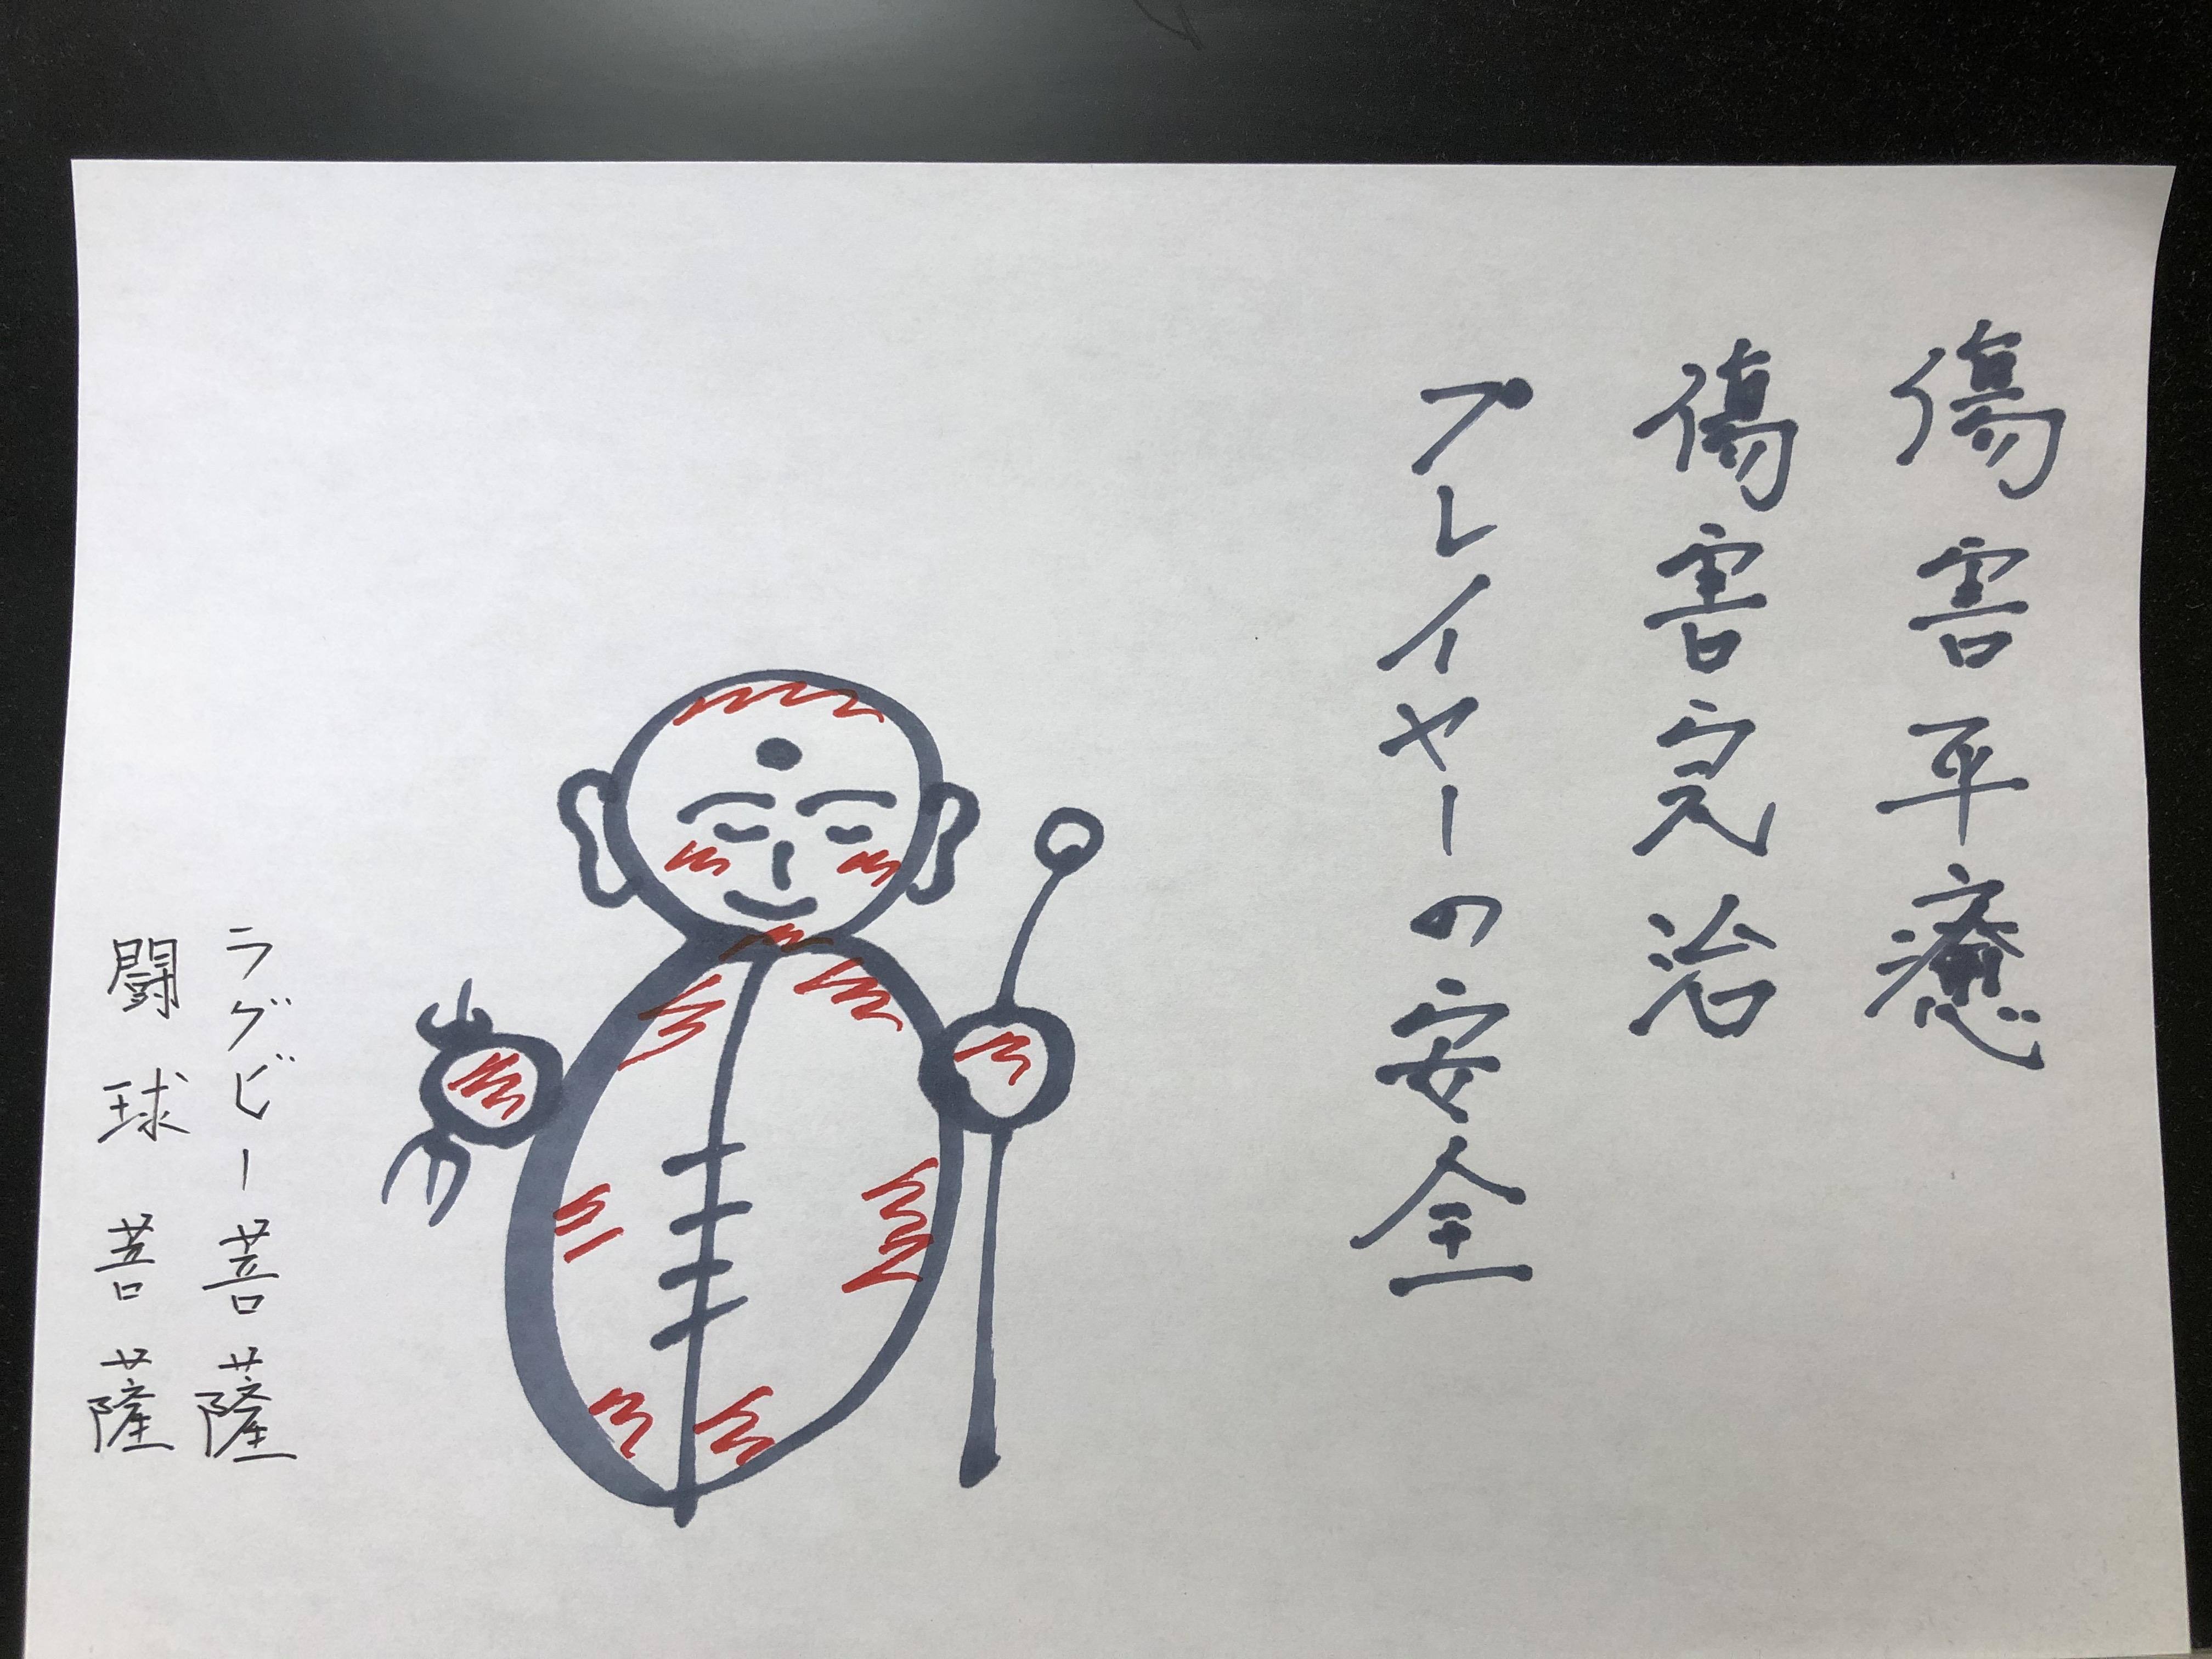 傷害平癒
傷害完治
プレイヤーの安全
ラグビー菩薩
闘球菩薩